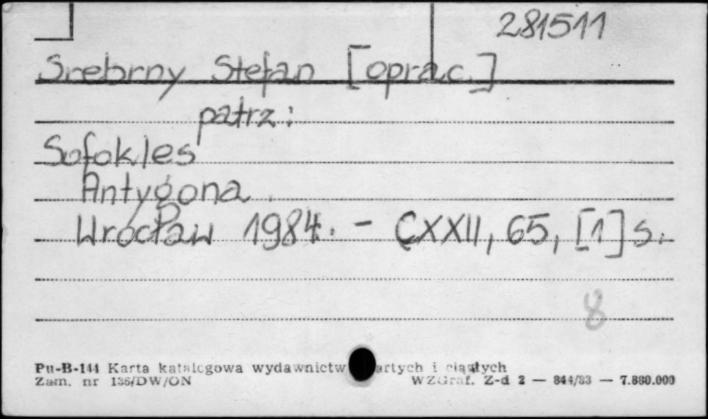 281511
Srebrny Stefan [oprac.]
patrz:
Sofokles
Antygona.
Wrocław 1984. - CXXII, 65, [1] s.
8
Pu-B-144 Karta katalogowa wydawnictw zwartych i ciągłych
Zam. nr 136/DW/ON WZGraf. Z-d 2 — 844/83 — 7.880.000